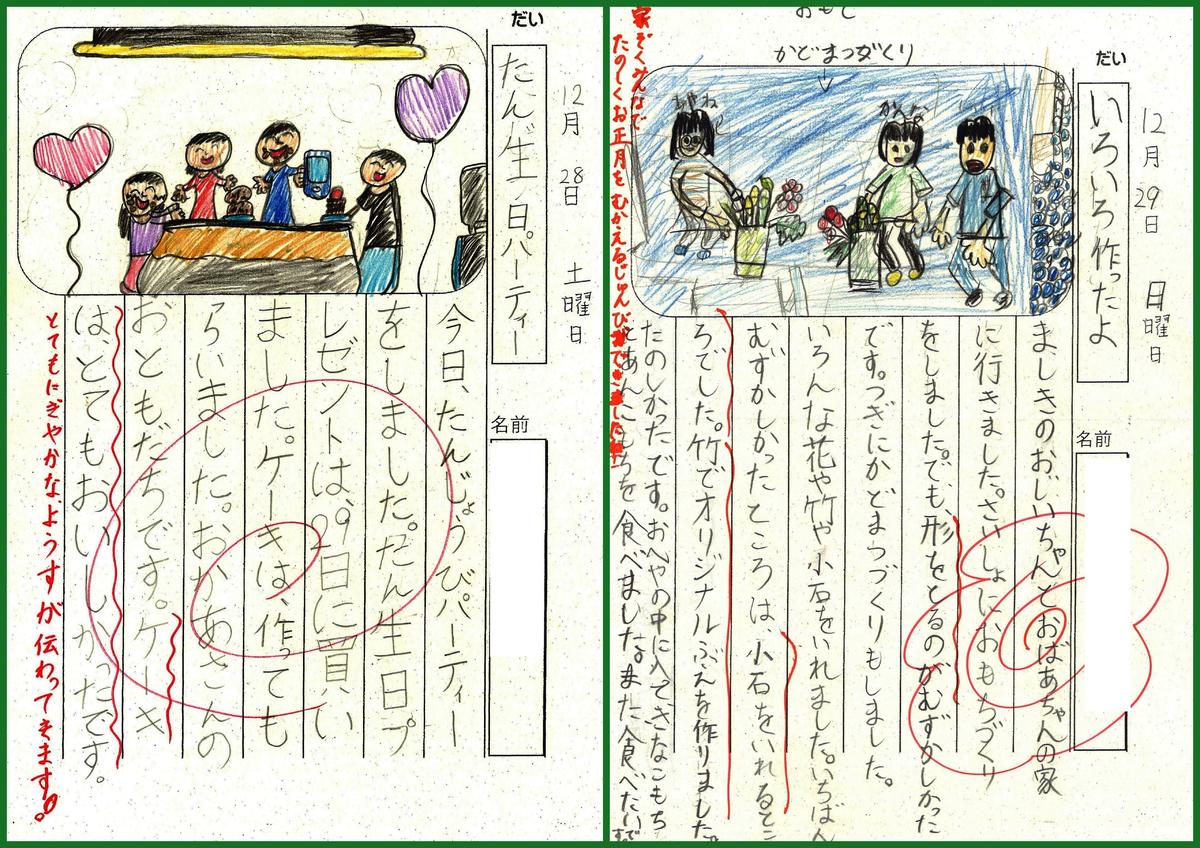 だい
たん生日パーティー
12月28日土曜日
名前
今日、たんじょうびパーティー
をしました。たん生日プ
レゼントは、29日に買い
ました。ケーキは、作っても
らいました。おかあさんの
おともだちです。ケーキ
は、とてもおいしかったです。
とてもにぎやかな、ようすが伝わってきます。
だい
いろいろ作ったよ
12月29日日曜日
名前
かどまつづくり
ましきのおじいちゃんとおばあちゃんの家
に行きました。さいしょにおもちづくり
をしました。でも、形をとるのがむずかしかった
です。つぎにかどまつづくりもしました。
いろんな花や竹や小石をいれました。いちばん
むずかしかったところは、小石をいれるとこ
ろでした。竹でオリジナルぶえを作りました。
たのしかったです。おへやの中に入ってきなこもち
とあんこもちを食べました。また食べたいです
家ぞくみんなで
たのしくお正月をむかえるじゅんびができましたね!